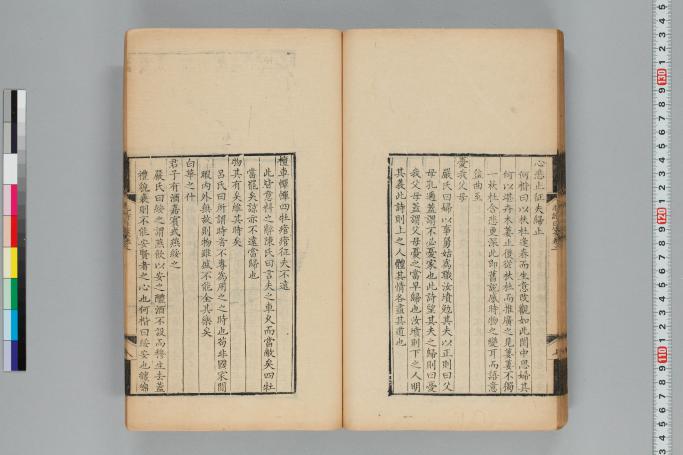 心悲止征夫歸止
何楷曰以杕杜逢春而生意改觀如此閨中思婦其
何以堪卉木萋止復從杕杜而推廣之見萋萋不獨
一杕杜合悲更深此即舊說感時物之變耳而語意
益曲至
憂我父母
嚴氏曰婦以事舅姑為職汝墳勉其夫以正則曰父
母孔邇蓋謂不必憂家也此詩望其夫之歸則曰憂
我父母蓋謂父母憂之當早歸也汝墳則下之人明
其義此詩則上之人體其情各盡其道也
檀車幝幝四牡痯痯征夫不遠
此皆意料之辭陳氏曰言夫之車久而當敝矣四牡
當罷矣諒亦不遠當歸也
物其有矣維其時矣
呂氏曰所謂時者不專為用之之時也苟非國家閒
暇內外無故則物雖盛不能全其樂矣
白華之什
君子有酒嘉賓式燕綏之
嚴氏曰綏之謂燕飲以安之醴酒不設而穆生去蓋
禮貌衰則不能安賢者之心也何楷曰綏安也